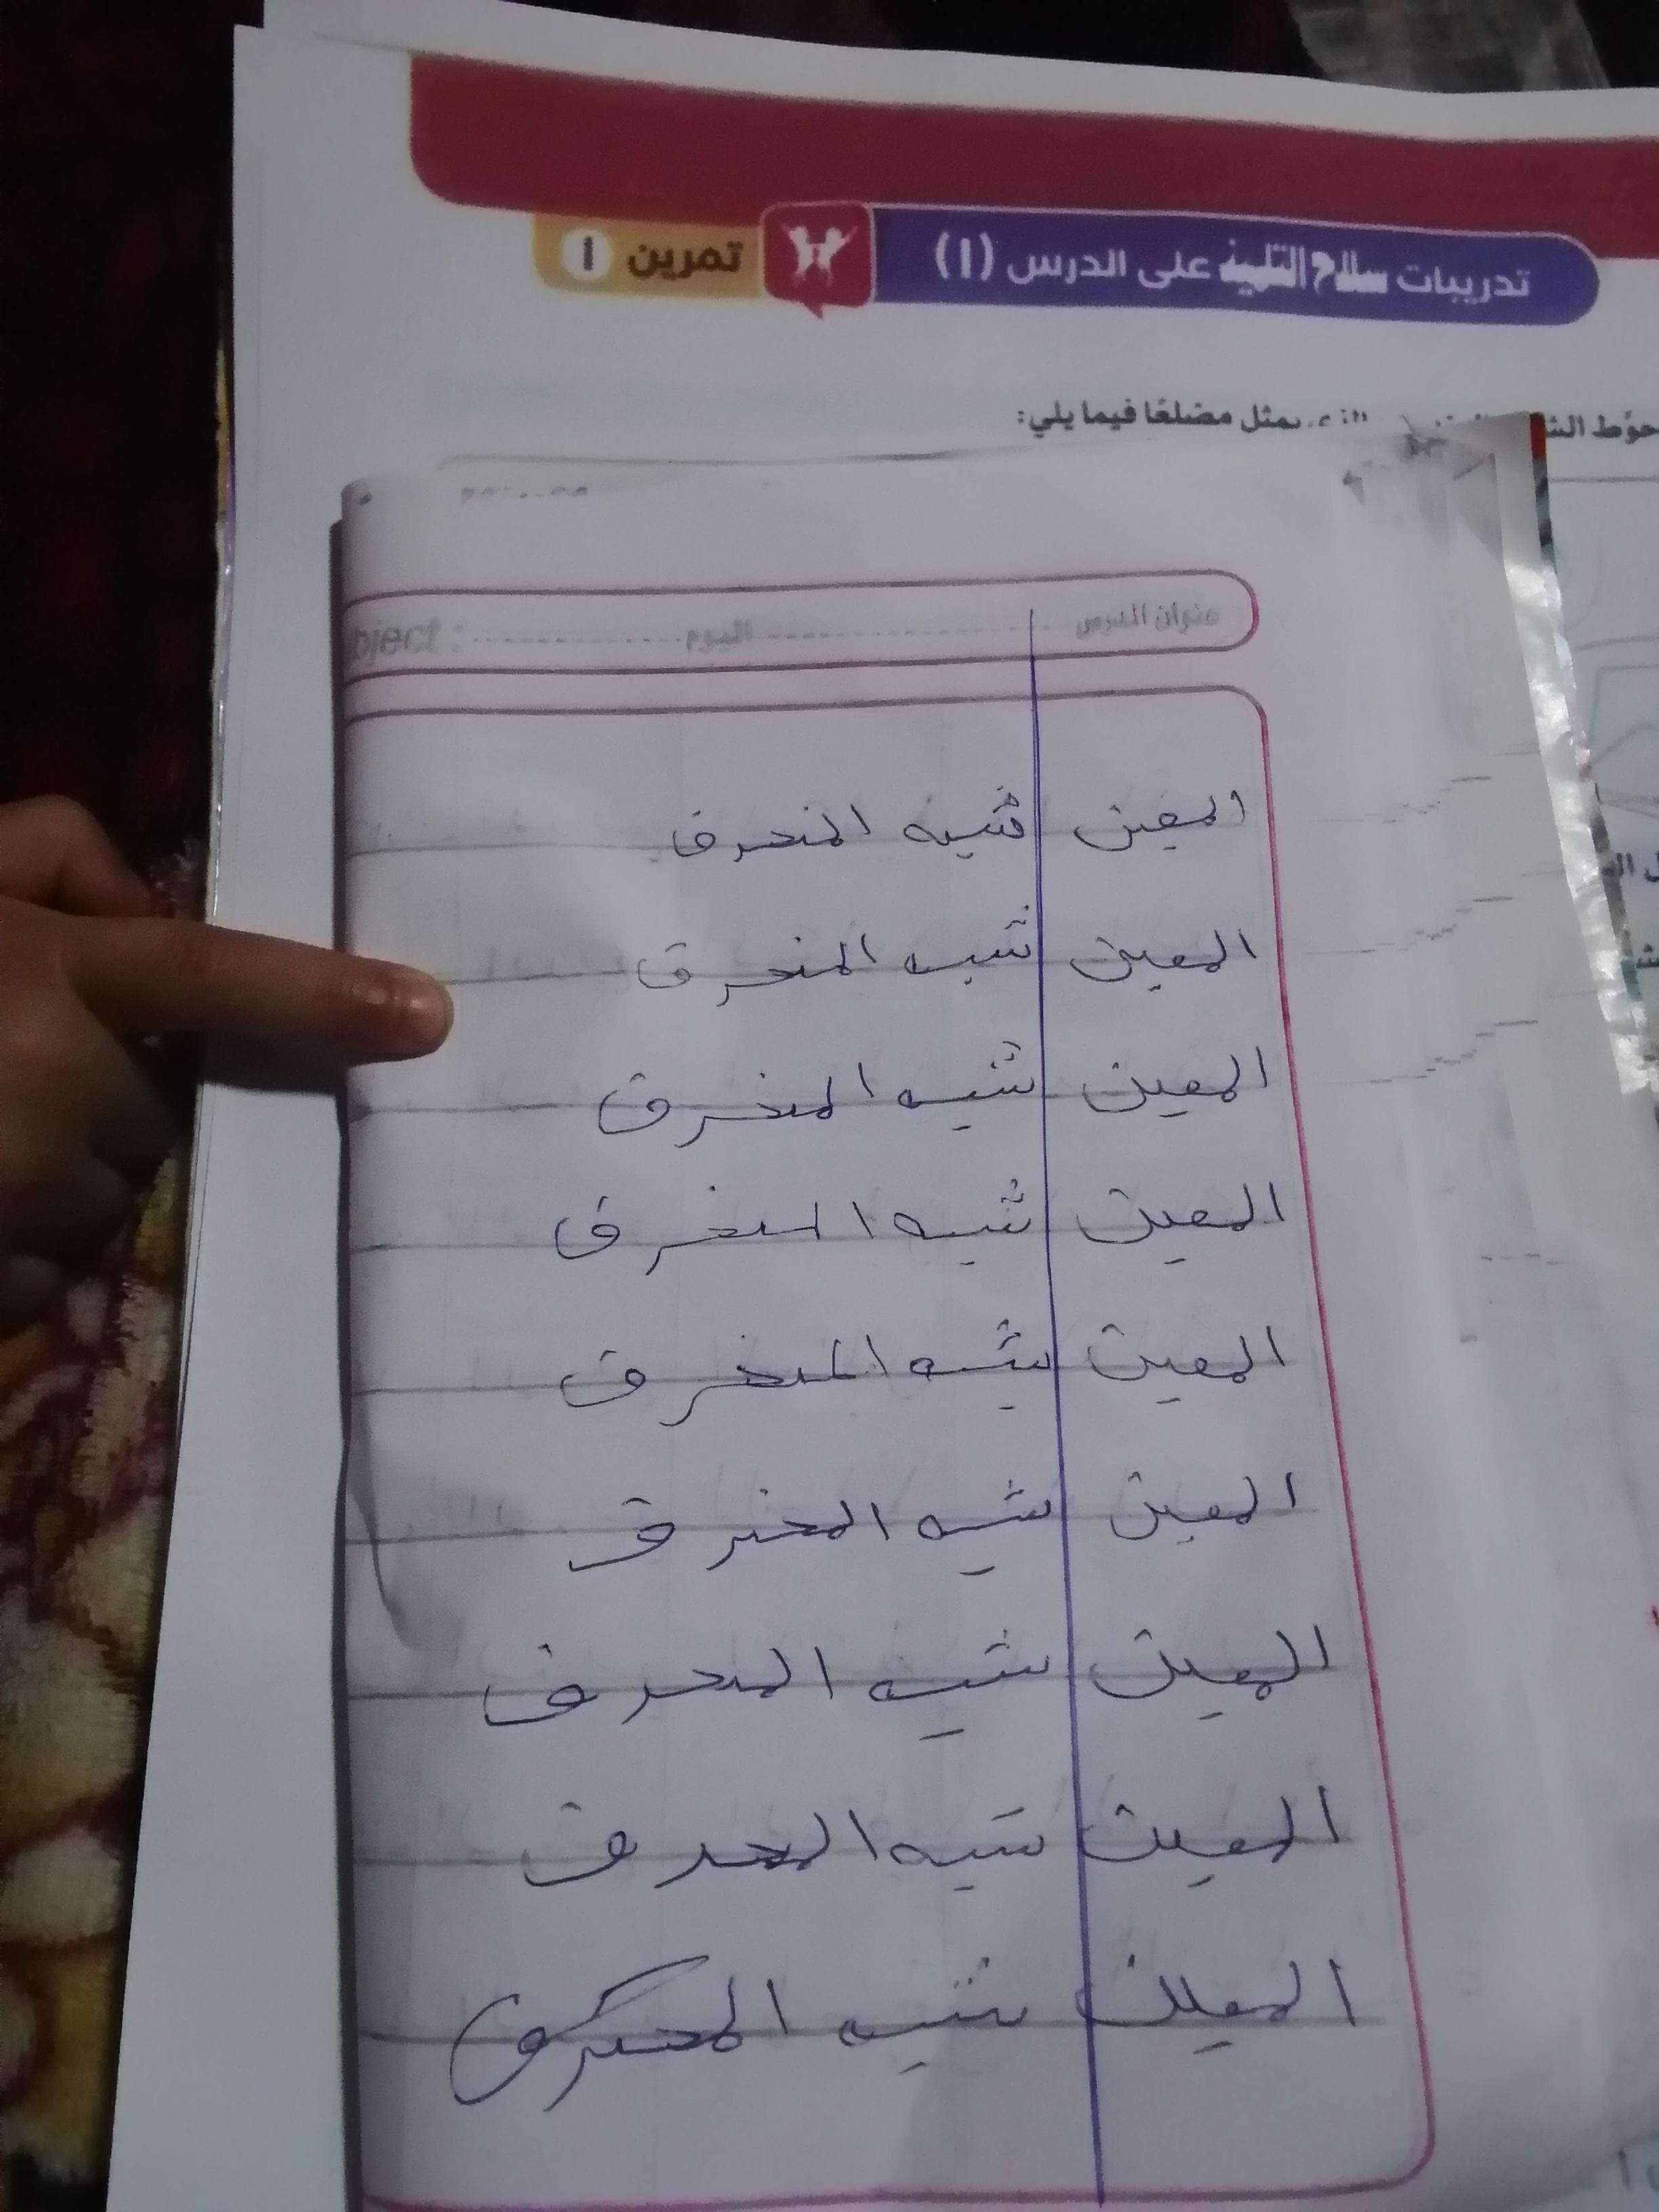 تدريبات سلاح التلميذ على الدرس (١) تمرين ١
حوّط الذي يمثل مضلعًا فيما يلي:
عنوان الدرس اليوم bject :
المعين شبه المنحرف
المعين شبه المنحرف
المعين شبه المنحرف
المعين شبه المنحرف
المعين شبه المنحرف
المعين شبه المنحرف
المعين شبه المنحرف
المعين شبه
المعين شبه